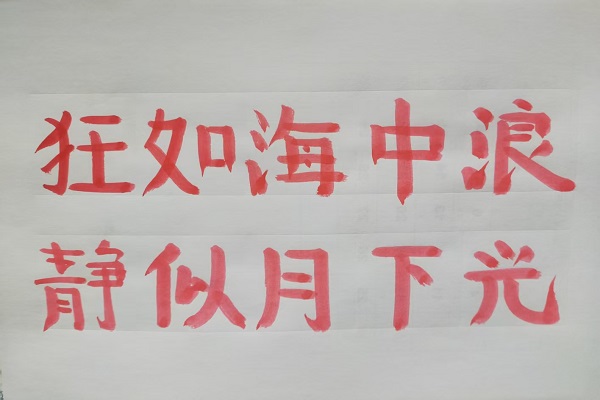 狂如海中浪
静似月下光